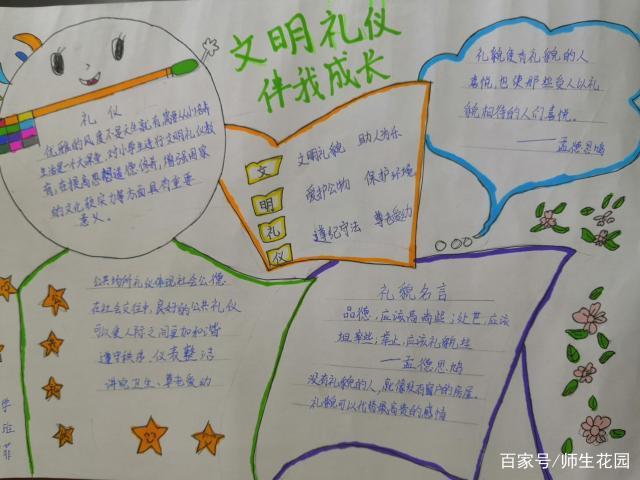 文明礼仪
伴我成长
礼仪
优雅的风度不是天生就有,需要从小培养
生活是个大课堂,对小学生进行文明礼仪教
育,在提高思想道德修养,增强国家
的文化软实力等方面具有重要
意义。
礼貌使有礼貌的人
喜悦,也使那些受人以礼
貌相待的人们喜悦。
——孟德思鸠
文明礼貌 助人为乐
爱护公物 保护环境
遵纪守法 尊老爱幼
文
明
礼
仪
公共场所礼仪体现社会公德
在社会交往中,良好的公共礼仪
可以使人际之间更加和谐
遵守秩序,仪表整洁
讲究卫生,尊老爱幼
礼貌名言
品德,应该高尚些;处世,应该
坦率些;举止,应该礼貌些
——孟德思鸠
没有礼貌的人,就像没有窗户的房屋。
礼貌可以代替最高贵的感情
学
班
菲
百家号/师生花园